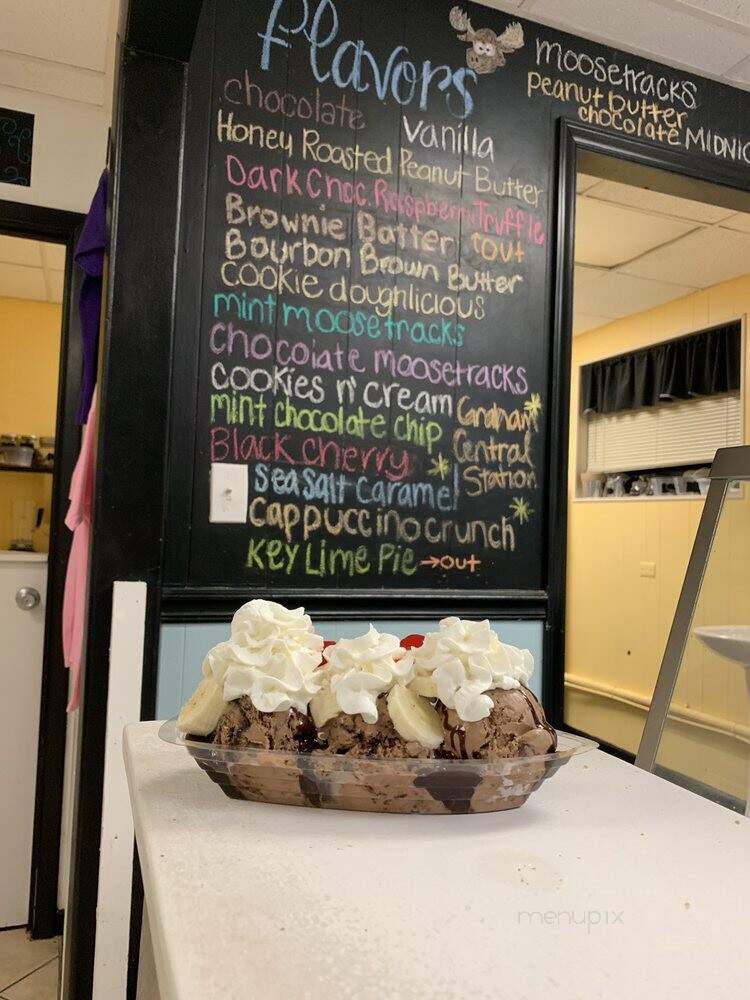 flavors
chocolate
vanilla
Honey Roasted Peanut Butter
Dark Choc. Raspberry Truffle
Brownie Batter out
Bourbon Brown Butter
cookie doughlicious
mint moosetracks
chocolate moosetracks
cookies n' cream
mint chocolate chip
Graham
Central
Station
Black cherry
sea salt caramel
cappuccino crunch
Key Lime Pie →out
moosetracks
peanut butter
chocolate
menupix